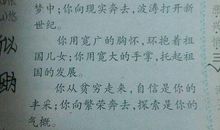 梦中；你向现实奔去，波涛打开新
世纪。
你用宽广的胸怀，环抱着祖
国儿女；你用宽大的手掌，托起祖
国的发展。
你从贫穷走来，自信是你的
丰采；你向繁荣奔去，探索是你的
气概。